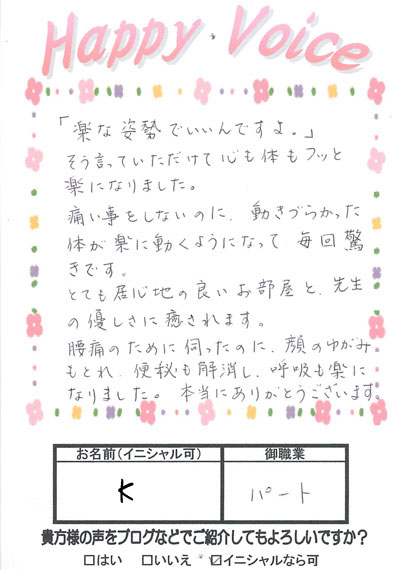 Happy Voice
「楽な姿勢でいいんですよ。」
そう言っていただけて心も体もフッと
楽になりました。
痛い事をしないのに、動きづらかった
体が楽に動くようになって毎回驚
きです。
とても居心地の良いお部屋と、先生
の優しさに癒されます。
腰痛のために伺ったのに、顔のゆがみ
もとれ、便秘も解消し、呼吸も楽に
なりました。本当にありがとうございます。
お名前(イニシャル可) 御職業
K パート
貴方様の声をブログなどでご紹介してもよろしいですか?
□はい □いいえ ☑イニシャルなら可